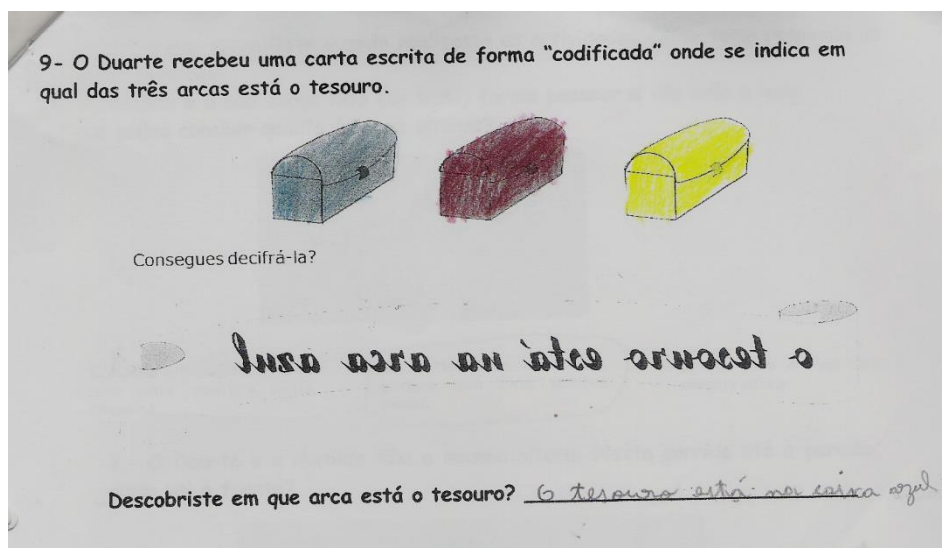 9- O Duarte recebeu uma carta escrita de forma "codificada" onde se indica em
qual das três arcas está o tesouro.
Consegues decifrá-la?
o tesouro está na arca azul
Descobriste em que arca está o tesouro? O tesouro está na caixa azul